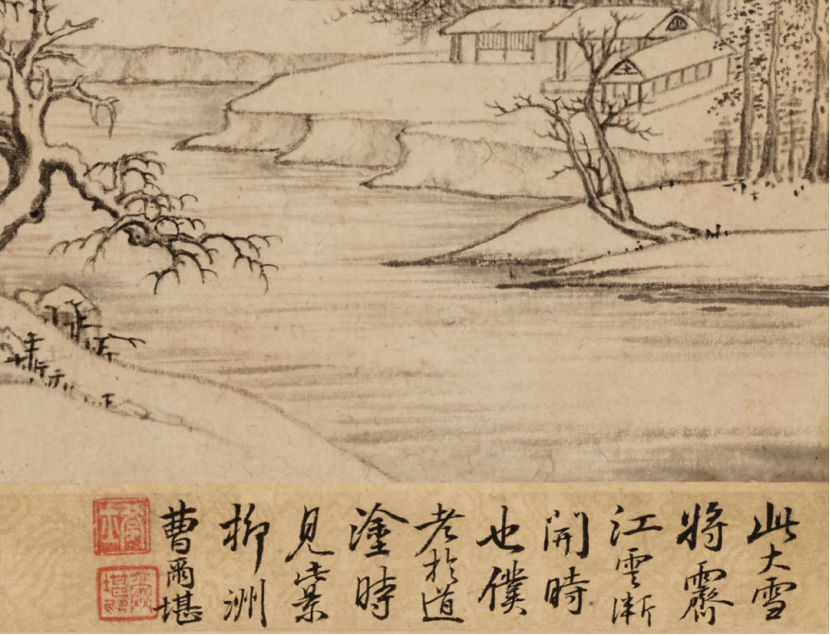 此大雪
将霽
江雲漸
開時
也僕
老於道
塗時
見此景
柳洲
曹爾堪